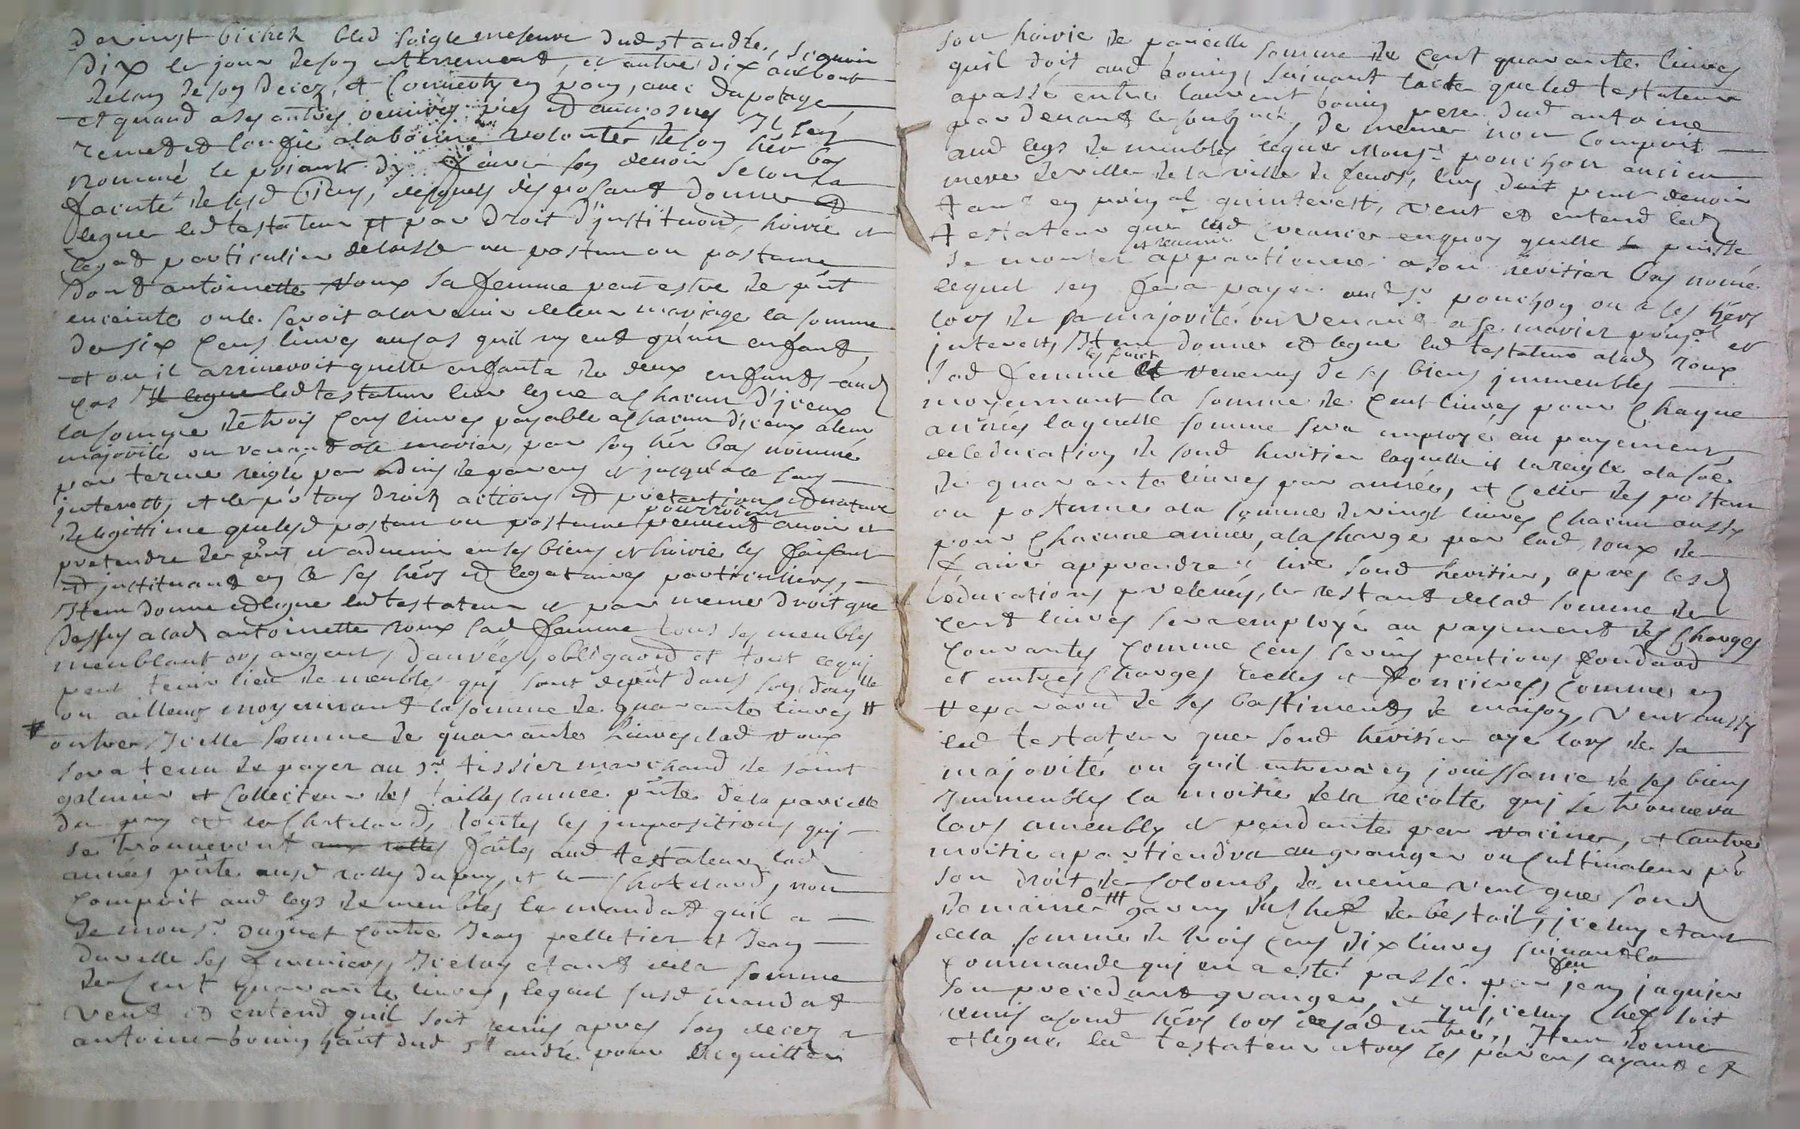 de vingt bichets bled soigle mesure dud st andré, sçavoir
dix le jour de son enterrement, et autre dix au bout
de lan de son decez, et convertis en pain, avec du potage
et quand a ses autres oeuvres pies et aumosnes Il sen
remet et confie a la bonne volonté de son hér bas
nommé le priant dy faire son devoir selon la
faculté de sesd biens, desquels disposant donne et
legue led testateur et par droit d'instituõn, hoirie et
legat particulier delaisse au postum ou postume
dont antoinette Roux sa femme peut estre de pñt
enceinte ou le seroit a lavenir de leur mariage la somme
de six cens livres au cas quil ny eut qu'un enfant,
et ou il arriveroit quelle enfanta de deux enfants aud
cas led testateur leur legue a chacun d'iceux
la somme de trois cens livres payable a chacun diceux a leur
majorité ou venant a se marier, par son hér bas nommé
par terme reiglé par advis de parens et jusqu'a ce sans
interests, et ce pr tous droits actions et pretentions et nature
de legittime que lesd postum ou postume pourroient avoir et
pretendre de pñt et advenir en ses biens et hoirie les faisant
et instituant en ce ses hérs et legataires particuliers,
Item donne et legue led testateur et par meme droit que
dessus a lad antoinette roux sad femme tous ses meubles
meublant ors argent, danrées, obligaoñs et tout ce qui
peut tenir lieu de meubles qui sont de pñt dans son domlle
ou ailleurs moyennant la somme de quarante livres #
# outre Icelle somme de quarante livres lad roux
sera tenu de payer au sr tissier marchand de saint
galmier et Collecteur des tailles lannée pñte de la parcelle
du puy et la Chatelard, toutes les impositions qui
se trouveront faites aud testateur lad
année pñte ausd rolles du puy et le Chatelard, non
compris aud legs de meubles le mandat quil a
de monsr duguet contre Jean pelletier et Jean
duvelle ses fermiers, Iceluy etant de la somme
de Cent quarante livres, lequel susd mandat
veut et entend quil soit remis apres son decez a
antoine bonin hãnt dud st andré pour lacquitter
son hoirie de pareille somme de cent quarante livres
quil doit aud bonin, suivant lacte que led testateur
a passé entre laurent bonin pere dud antoine
par devant le soubsné, de meme non compris
aud legs de meubles ce que Monsr ponchon ancien
mere de ville de la ville de feurs, luy doit peut devoir
tant en prinpal quinterest, veut et entend led
testateur que lad creance en quoy quelle puisse
se monter et revenir appartienne a son hêritier bas nomé
lequel sen fera payer aud sr ponchon ou a ses hérs
lors de sa majorité ou venant a se marier prinpal et
interests, Item donne et legue led testateur a lad roux
sad femme les fruits revenus de ses biens immeubles
moyennant la somme de cent livres pour Chaque
année laquelle somme sera employé au payement
de leducation de sond heritier laquelle il a reiglé a la soê
de quarante livres par année, et celle des postum
ou postume a la somme de vingt livres Chacun aussy
pour Chacune année, a la charge par lad roux de
faire apprendre a lire sond heritier, apres lesd
educations prelevés, le restant de lad somme de
cent livres sera employé au payement des Charges
courantes comme cens servis pentions fondaoñ
et autres Charges reelles et foncieres, comme en
reparaoñ de ses bastiments de maison, veut aussy
led testateur que sond hêritier aye lors de sa
majorité ou quil entrera en jouissance de ses biens
Immeubles la moitié de la recolte qui se trouvera
lors ameubly et pendante par racine, et lautre
moitié apartiendra au granger ou Cultivateur pr
son droit de Colomb, de meme veut que sond
domaine garny du chef de bestail, iceluy etant
de la somme de trois cens dix livres suivant la
commande qui en a esté passé par jean jaquier
son precedant granger, et qu'iceluy Chef soit
remis a sond hérs lors de sad entrée, Item donne
et legue led testateur a tous ses parens ayant et